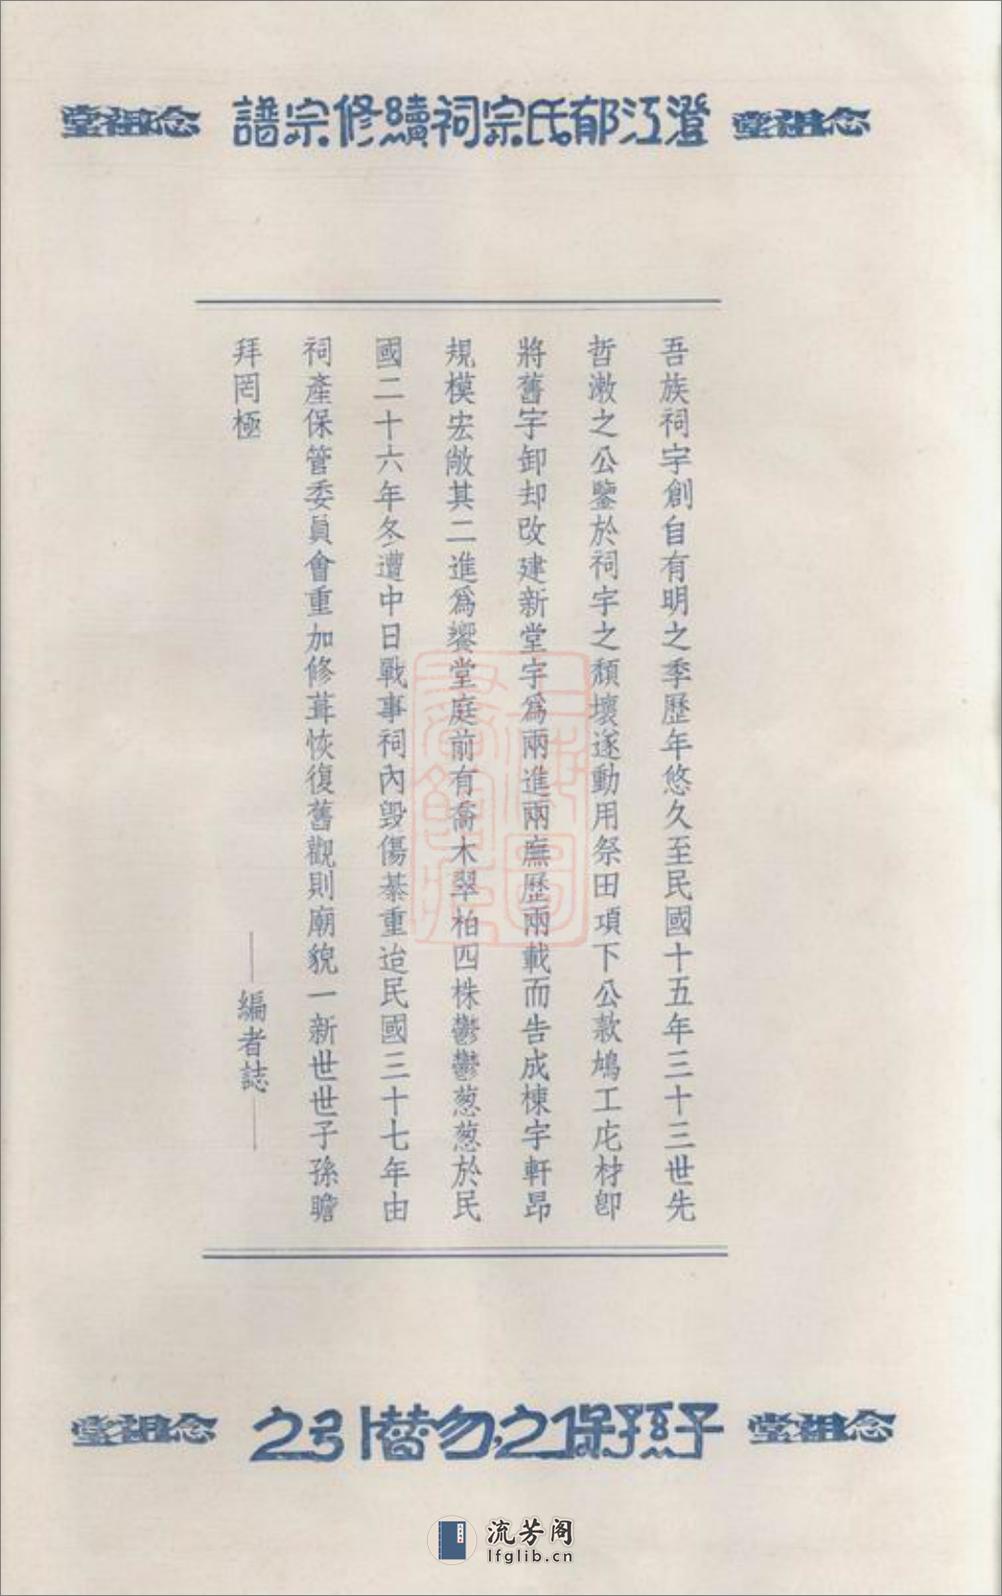 念祖堂 澄江郁氏宗祠續修宗譜 念祖堂
吾族祠宇創自有明之季歷年悠久至民國十五年三十三世先
哲漱之公鑒於祠宇之頹壞遂動用祭田項下公款鳩工庀材卽
將舊宇卸却改建新堂宇爲兩進兩廡歷兩載而告成棟宇軒昂
規模宏敞其二進爲饗堂庭前有喬木翠柏四株鬱鬱葱葱於民
國二十六年冬遭中日戰事祠內毀傷綦重迨民國三十七年由
祠產保管委員會重加修葺恢復舊觀則廟貌一新世世子孫瞻
拜罔極
——編者誌——
念祖堂 子孫保之,勿替引之 念祖堂
流芳阁
lfglib.cn